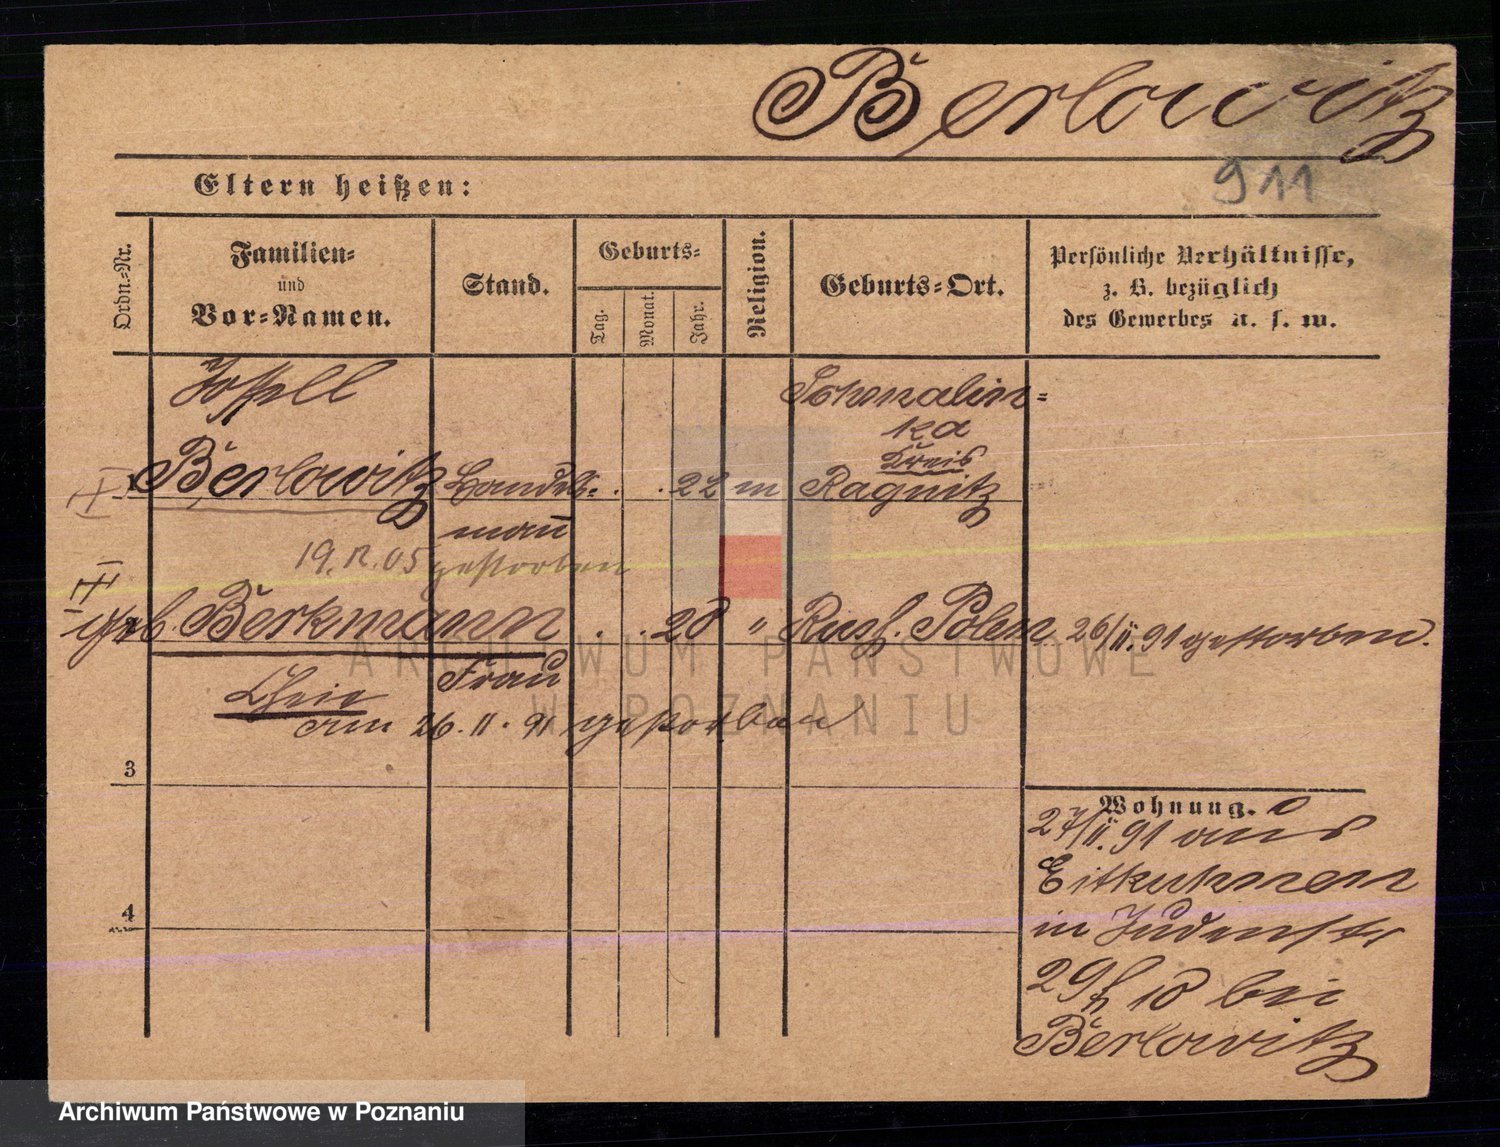 Berlowitz
911
Eltern heißen:
Ordn.-Nr.
Familien-
und
Vor-Namen.
Stand.
Geburts-
Tag.
Monat.
Jahr.
Religion.
Geburts-Ort.
Persönliche Verhältnisse,
z. B. bezüglich
des Gewerbes u. s. w.
Berlowitz Handels- . . 22 m
mann
Kreis
Ragnitz
19.12.05 gestorben
geb. Berkmann . . 28 " Russ. Polen 26/II.91 gestorben.
Frau
am 26.11.91 gestorben
3
4
Wohnung.
27/II.91 aus
Eitkuhnen
in Judenstr
bei
Berlowitz
ARCHIWUM PAŃSTWOWE
W POZNANIU
Archiwum Państwowe w Poznaniu